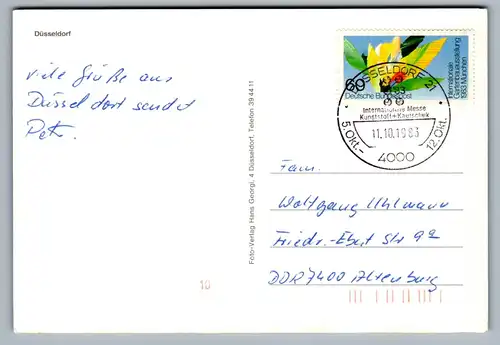 Düsseldorf
viele Grüße aus
Düsseldorf sendet
Petr.
Foto-Verlag Hans Georgi, 4 Düsseldorf, Telefon 39 44 11
60
Deutsche Bundespost
Internationale
Gartenbauausstellung
1983 München
DÜSSELDORF 21
K'83
Internationale Messe
Kunststoff+Kautschuk
5.Okt.-
11.10.1983
12.Okt.
4000
Fam.
Wolfgang Uhlmann
Friedr.-Ebert Str 9a
DDR 7400 Altenburg
10